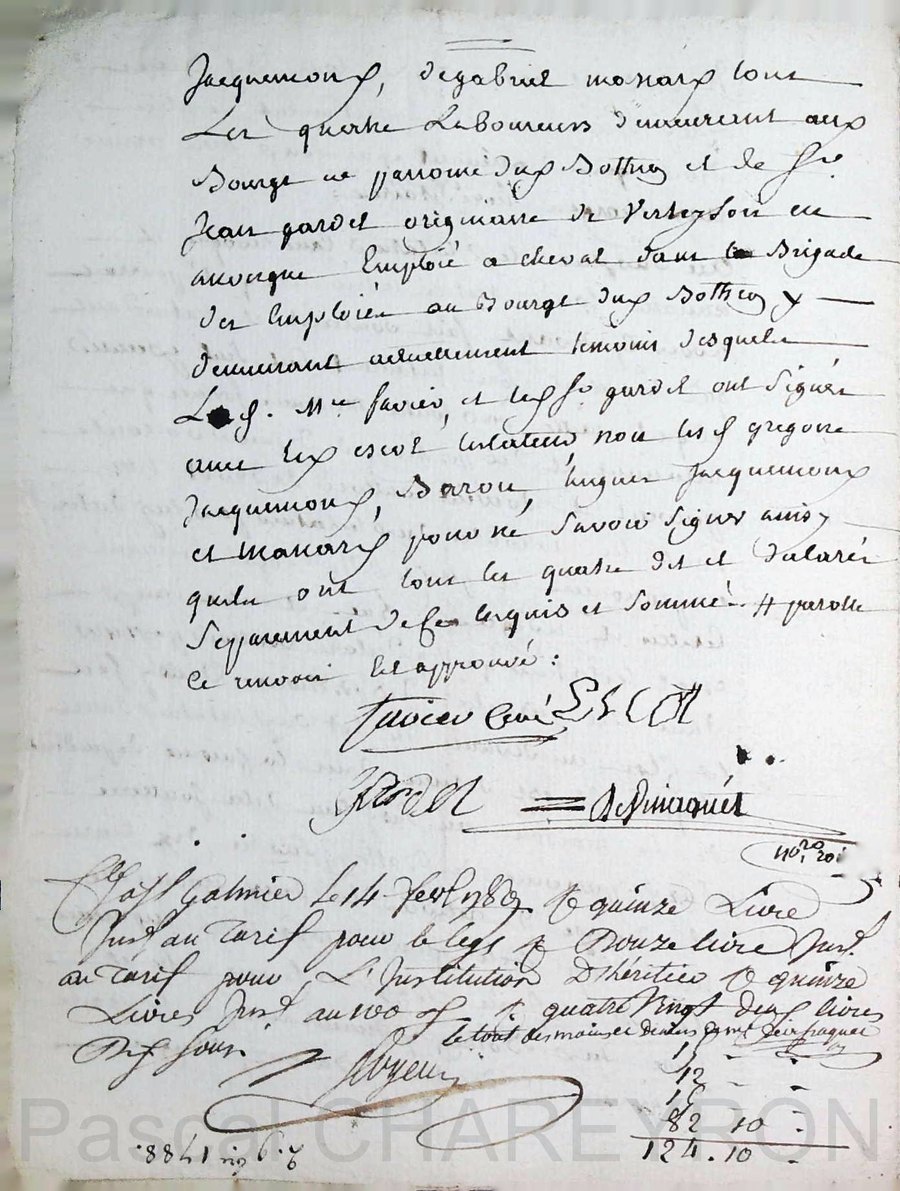 Jacquemont, de gabriel manaux tous
Les quatre Laboureurs demeurant aux
Bourgt et parroisse Duz Botheo et de Sr.
Jean gardet originaire de Verteyson en
auvergne Emploié a cheval dans la Brigade
des Emploiés au Bourgt Duz Botheon
demeurant actuellement temoins lesquels
Le S. Mre favier, et led Sr gardet ont Signés
avec led escot testateur non les d gregoire
Jacquemont, Baron, hugues Jacquemont
et manaux pour ne Savoir Signer ainsy
quils ont tous les quatre dit et declarés
Separement de ce Enquis et Sommé. # parolle
Ce renvoi Est approuvé :
favier Curé ESCOT
Gardet
no. 20
Galmier Le 14 fevr 1789 quinze Livre
au Tarif pour le legs Douze livre
au Tarif pour L'Institution D'héritier quinze
Livres au 100 d quatre Vingt deux livres
Dix Sous.
le tout des mains de
12
82 10
124 . 10
1788
Pascal CHAREYRON